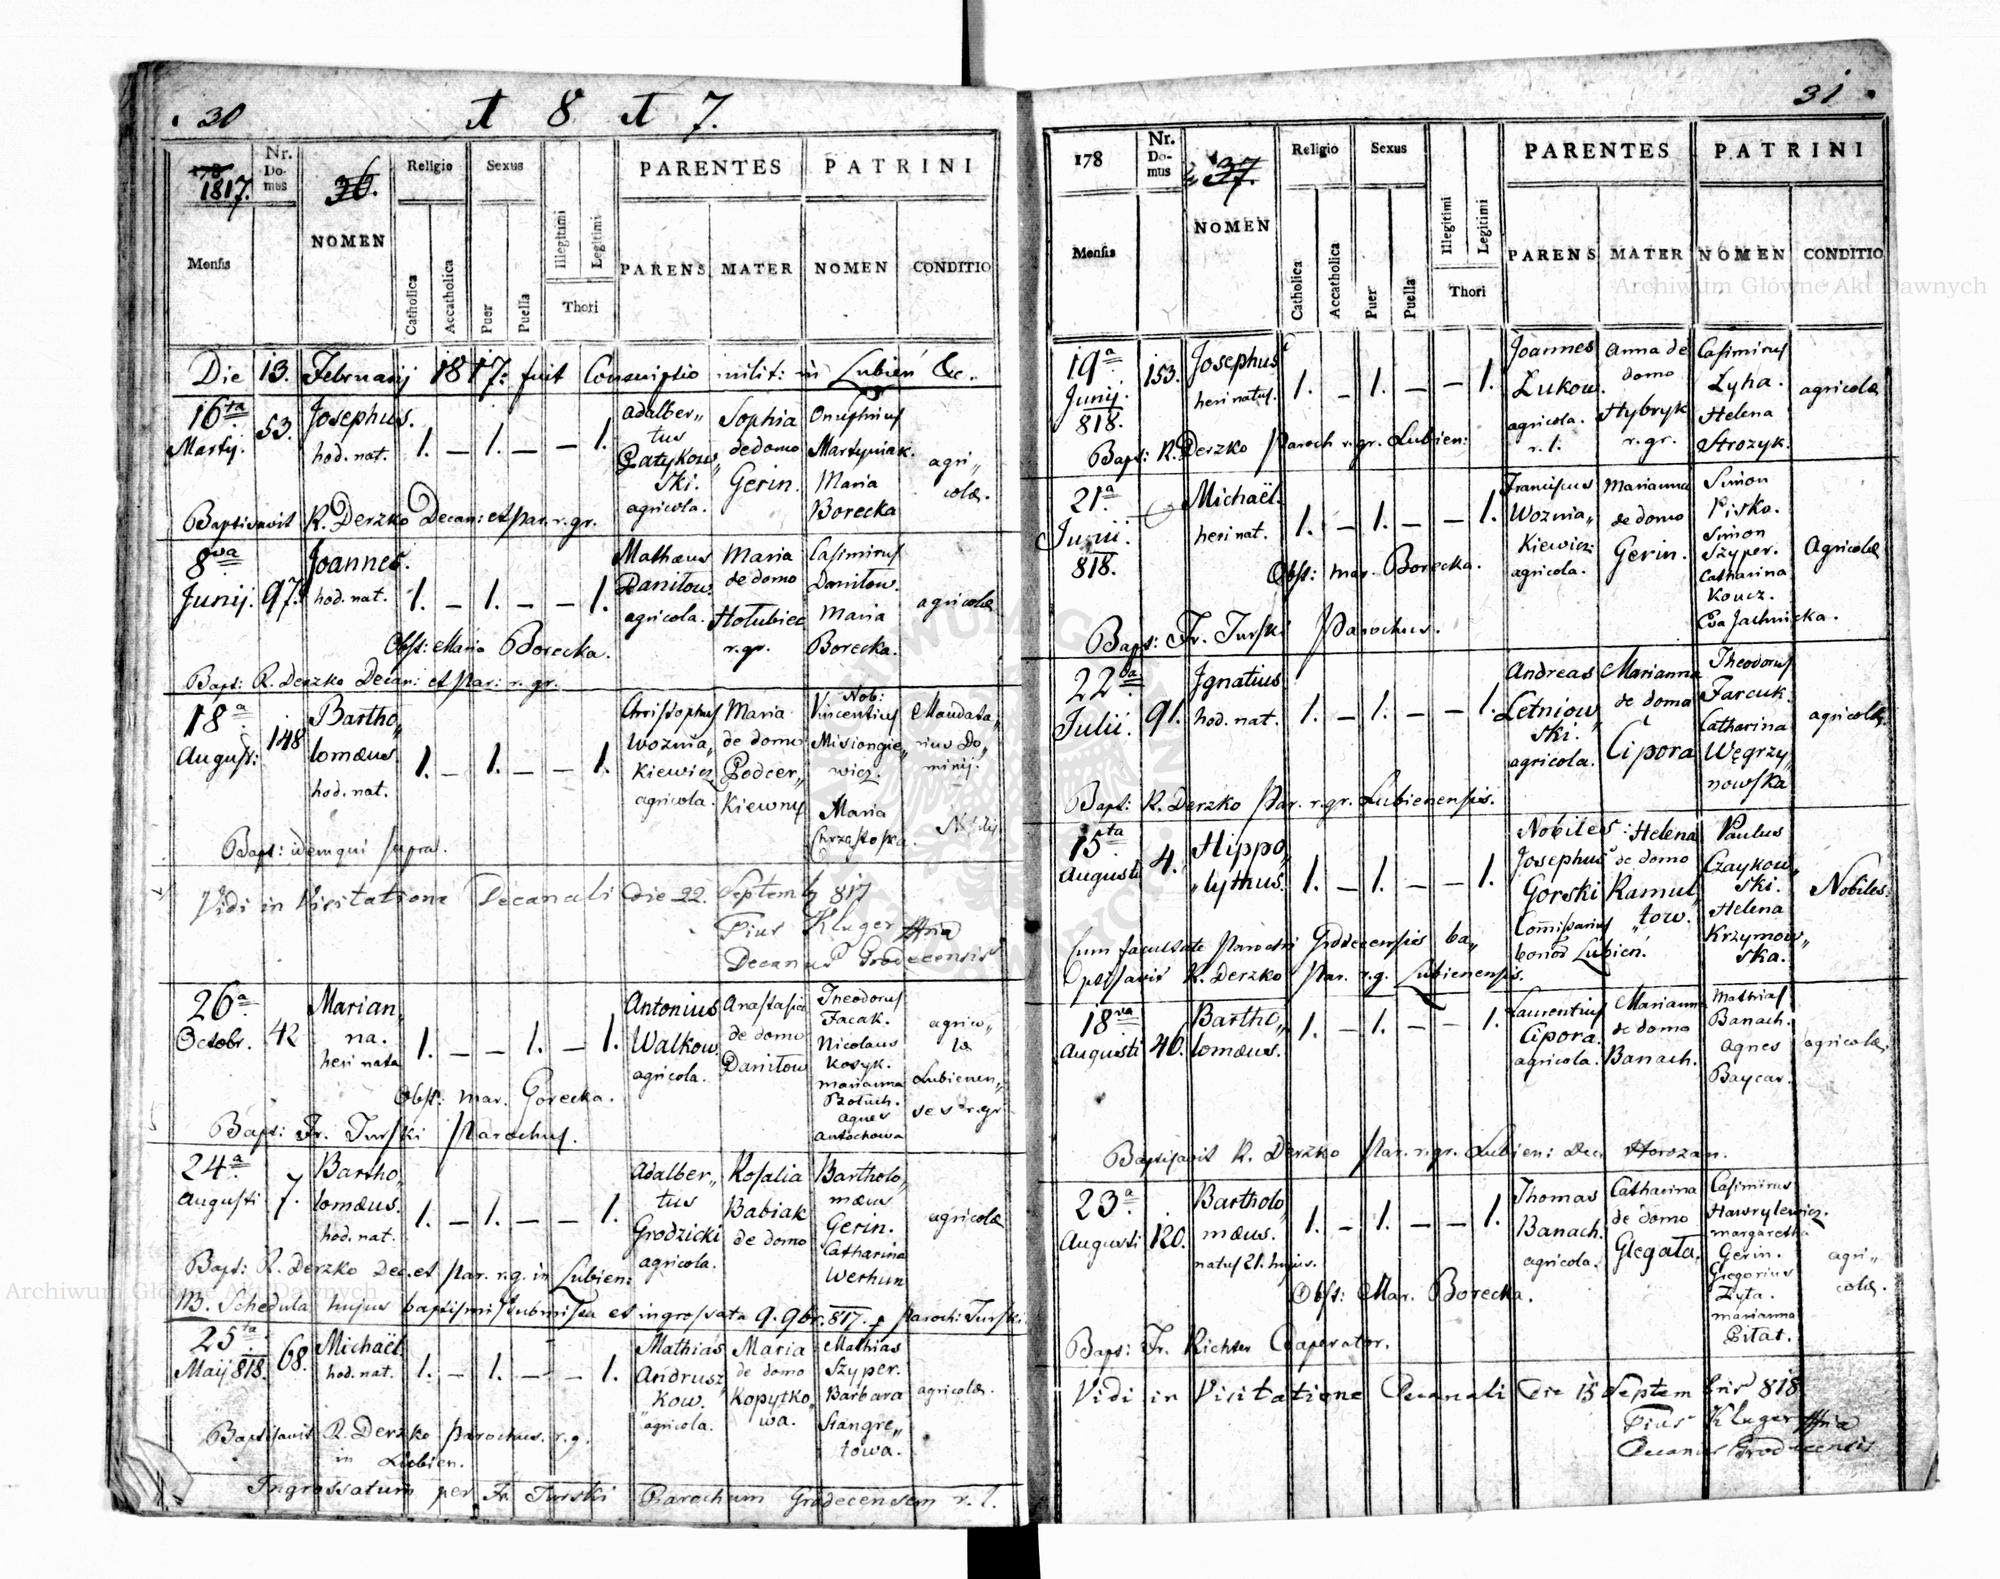 30
1 8 1 7.
178
1817.
Nr. Domus
36.
NOMEN
Religio
Sexus
PARENTES
PATRINI
Mensis
Catholica
Accatholica
Puer
Puella
Illegitimi
Legitimi
Thori
PARENS
MATER
NOMEN
CONDITIO
Die 13. Februarij 1817: fuit Conscriptio milit: in Lubień &c.
16ta Martij.
53.
Josephus.
hod. nat.
1. – 1. – – 1.
Adalber„
tus
Patykow„
ski.
agricola.
Sophia
de domo
Gerin.
Onuphrius
Martyniak.
Maria
Borecka
agri„
colæ.
Baptisavit R. Derzko Decan: et par. r. gr.
8va Junij.
97.
Joannes.
hod. nat.
1. – 1. – – 1.
Mathæus
Daniłow.
agricola.
Maria
de domo
Hołubiec
r. gr.
Casimirus
Daniłow.
Maria
Borecka.
agricolæ
Obst: Maria Borecka.
Bapt: R. Derzko Decan: et par: r. gr.
18a August:
148
Bartho„
lomæus.
hod. nat.
1. – 1. – – 1.
Christophus
Woznia„
kiewicz
agricola.
Maria
de domo
Podcer„
kiewny
Nob:
Vincentius
Misiongie„
wicz.
Maria
Chrząstoska.
Mandata„
rius Do„
minij.
Bapt: idem qui supra.
Vidi in Visitatione Decanali die 22. Septemb 817
Pius Kluger
Decanus Grodecensis
26a Octobr.
42
Marian„
na.
heri nata
1. – – 1. – 1.
Antonius
Walkow.
agricola.
Anastasia
de domo
Daniłow
Theodorus
Facak.
Nicolaus
Kosyk.
marianna
Agnes
Antochowa
agrico„
læ
Lubienen„
ses r. gr
Obst: mar. Gorecka.
Bapt: Fr. Turski Parochus.
24a Augusti
7.
Bartho„
lomæus.
hod. nat.
1. – 1. – – 1.
Adalber„
tus
Grodzicki
agricola.
Rosalia
Babiak
de domo
Bartholo„
mæus
Gerin.
Catharina
Werhun
agricolæ
Bapt: R. Derzko Dec. et Par. r. g. in Lubien:
NB. Schedula hujus baptismi submissa et ingrossata 9. 9br. 817. p Paroch: Turski
25ta Maij 818.
68.
Michaël
hod. nat.
1. – 1. – – 1.
Mathias
Andrusz„
kow.
agricola.
Maria
de domo
Kopytko„
wa.
Mathias
Szyper.
Barbara
Stangre„
towa.
agricolæ.
Baptisavit R. Derzko Parochus. r. g.
in Lubien.
Ingrossatum per Fr. Turski Parochum Grodecensem r. l.
31
178
Nr. Domus
37.
NOMEN
Religio
Sexus
PARENTES
PATRINI
Mensis
Catholica
Accatholica
Puer
Puella
Illegitimi
Legitimi
Thori
PARENS
MATER
NOMEN
CONDITIO
19a Junij. 818.
153.
Josephus
heri natus.
1. – 1. – – 1.
Joannes
Łukow.
agricola.
r. l.
Anna de
domo
Hybryk
r. gr.
Casimirus
Łyha.
Helena
Strozyk.
agricolæ
Bapt: R. Derzko Paroch r. gr. Lubien:
21a Junii. 818.
Michaël.
heri nat.
1. – 1. – – 1.
Franciscus
Woznia„
kiewicz
agricola.
Marianna
de domo
Gerin.
Simon
Pisko.
Simon
Szyper.
Catharina
Koucz.
Eva Jachnicka.
Agricolæ
Obst: mar. Borecka.
Bapt: Fr. Turski Parochus.
22da Julii.
91.
Ignatius
hod. nat.
1. – 1. – – 1.
Andreas
Letniow„
ski.
agricola.
Marianna
de domo
Cipora
Theodorus
Farcuk.
Catharina
Węgrzy„
nowska
agricolæ.
Bapt: R. Derzko Par. r. gr. Lubienensis.
15ta Augusti
4.
Hippo„
lythus.
1. – 1. – – 1.
Nobiles:
Josephus
Gorski
Comissarius
bonor Lubień.
Helena
de domo
Ramul„
tow.
Paulus
Czaykow„
ski.
Helena
Krzymow„
ska.
Nobiles:
Cum facultate Parochi Grodecensis ba„
ptisavit R. Derzko Par. r. g. Lubienensis.
18va Augusti
46.
Bartho„
lomæus.
1. – 1. – – 1.
Laurentius
Cipora.
agricola.
Marianna
de domo
Banach.
Mathias
Banach.
Agnes
Baycar.
agricolæ.
Baptisavit R. Derzko Par. r. gr. Lubien: Dec. Horozan.
23a Augusti
120.
Bartholo„
mæus.
natus 21. hujus.
1. – 1. – – 1.
Thomas
Banach.
agricola.
Catharina
de domo
Glegała.
Casimirus
Hawrylewicz.
margaretha
Gerin.
Gregorius
Zyta.
marianna
Pitat.
agri„
colæ.
Obst: Mar. Borecka.
Bapt: Fr. Richter Cooperator.
Vidi in Visitatione Decanali Die 15 Septembris 818
Pius Kluger
Decanus Grodecensis
Archiwum Główne Akt Dawnych
Archiwum Główne Akt Dawnych